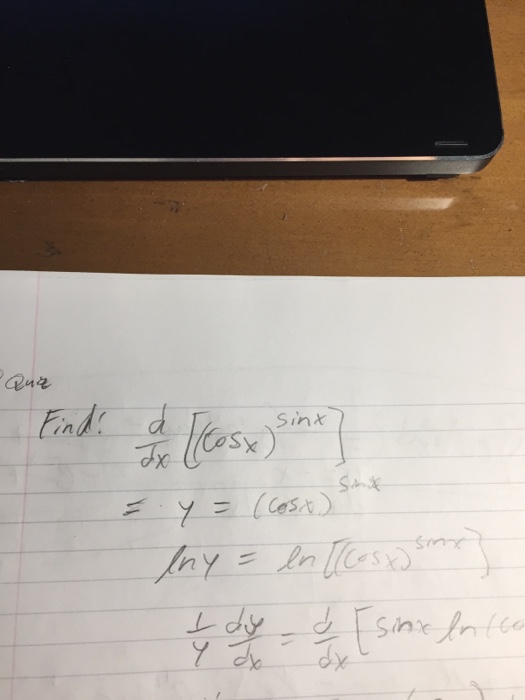 Quiz
Find: d/dx [(cosx)^sinx]
= y = (cosx)^sinx
lny = ln[(cosx)^sinx]
1/y dy/dx = d/dx [sinx ln(co